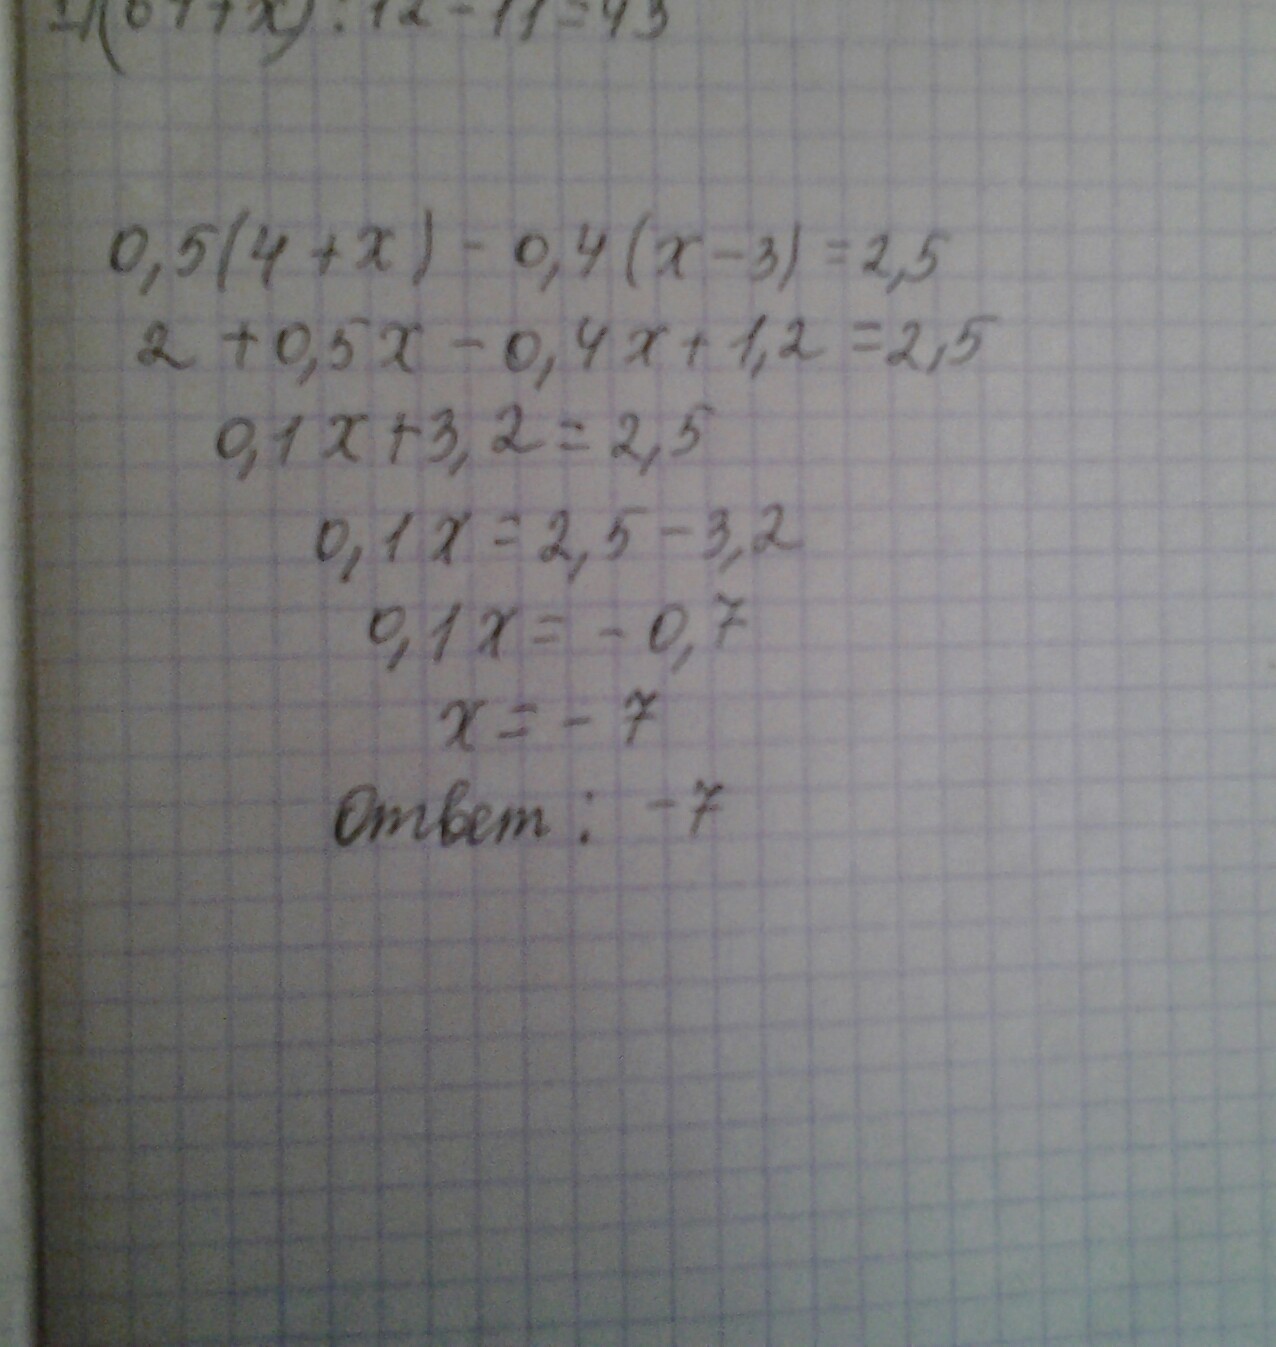 +x) : 12 - 11 = 43
0,5(4 + x) - 0,4(x - 3) = 2,5
2 + 0,5x - 0,4x + 1,2 = 2,5
0,1x + 3,2 = 2,5
0,1x = 2,5 - 3,2
0,1x = - 0,7
x = - 7
Ответ: -7